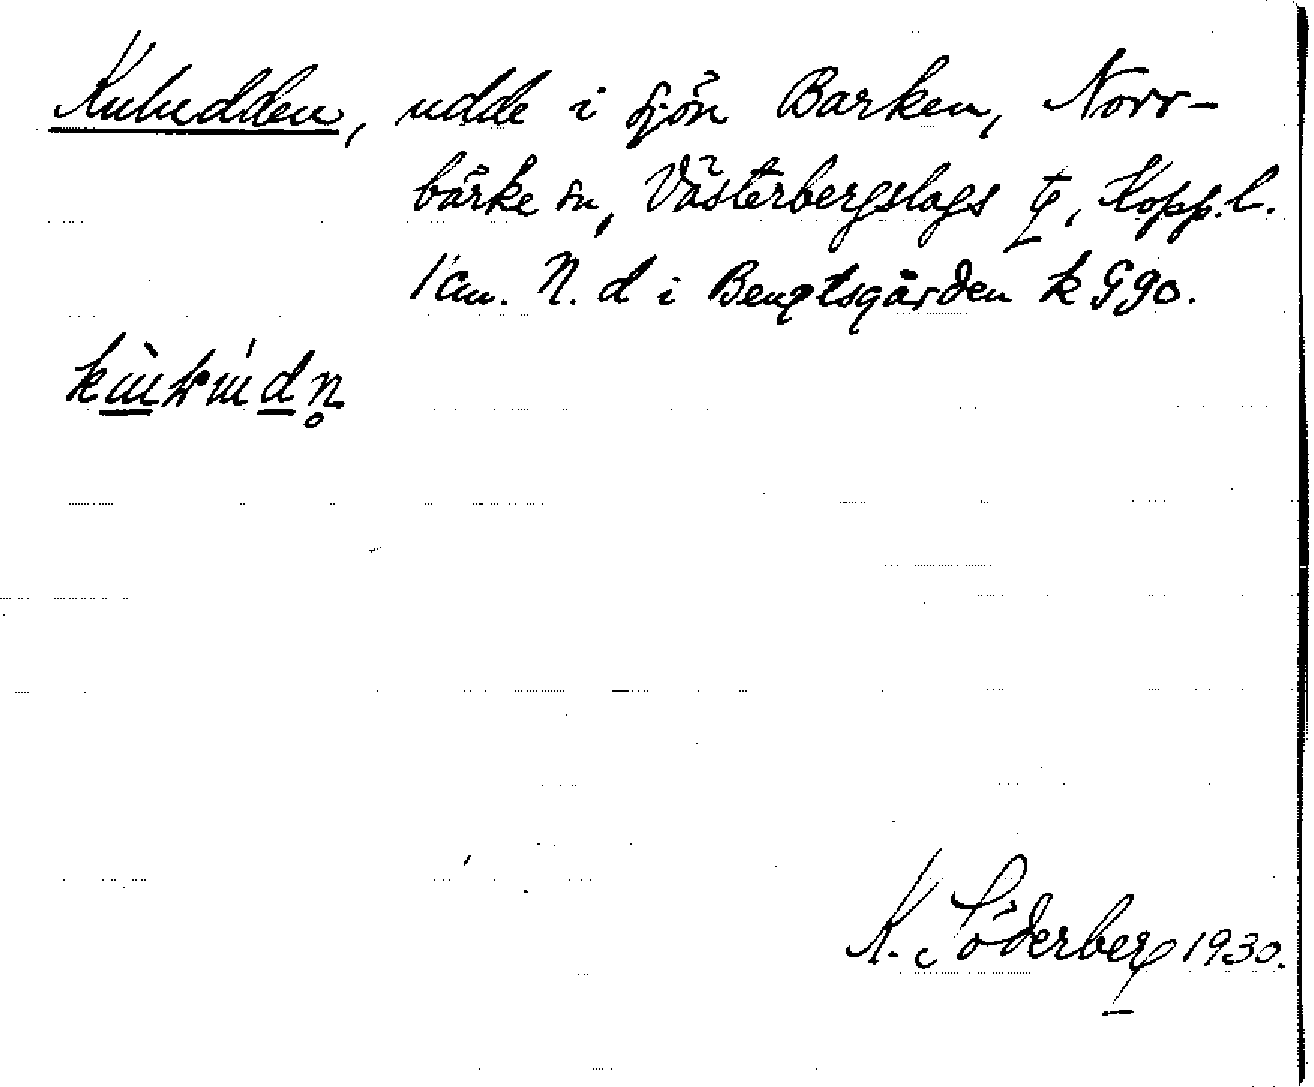 Kuludden, udde i sjön Barken, Norr-
bärke sn, Västerbergslags
Kopp. l.
1 cm. N. d i Bengtsgården k G 90.
K. Söderberg 1930.